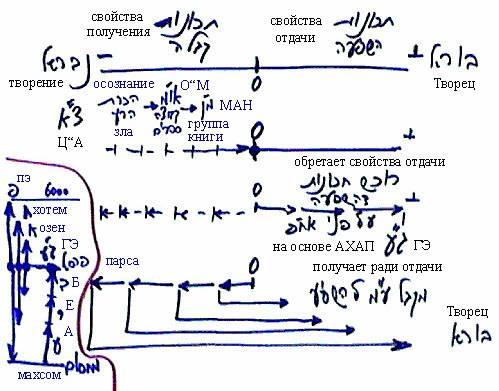 свойства получения
תכונות קבלה
свойства отдачи
תכונות השפעה
נברא
−
0
+
בורא
творение
осознание
О“М
Творец
הכרת הרע
או"מ
מ"ן
МАН
0
צ"א
Ц“А
зла
группа
книги
+
обретает свойства отдачи
רוכש תכונות דהשפעה
על פני אח"פ
0
+
на основе АХАП
ג"ע
ГЭ
пэ
פ
6000
хотем
озен
ГЭ
ג"ע
парса
פרסה
Б
Е
А
ע
0
получает ради отдачи
מקבל ע"מ להשפיע
Творец
בורא
махсом
מחסום